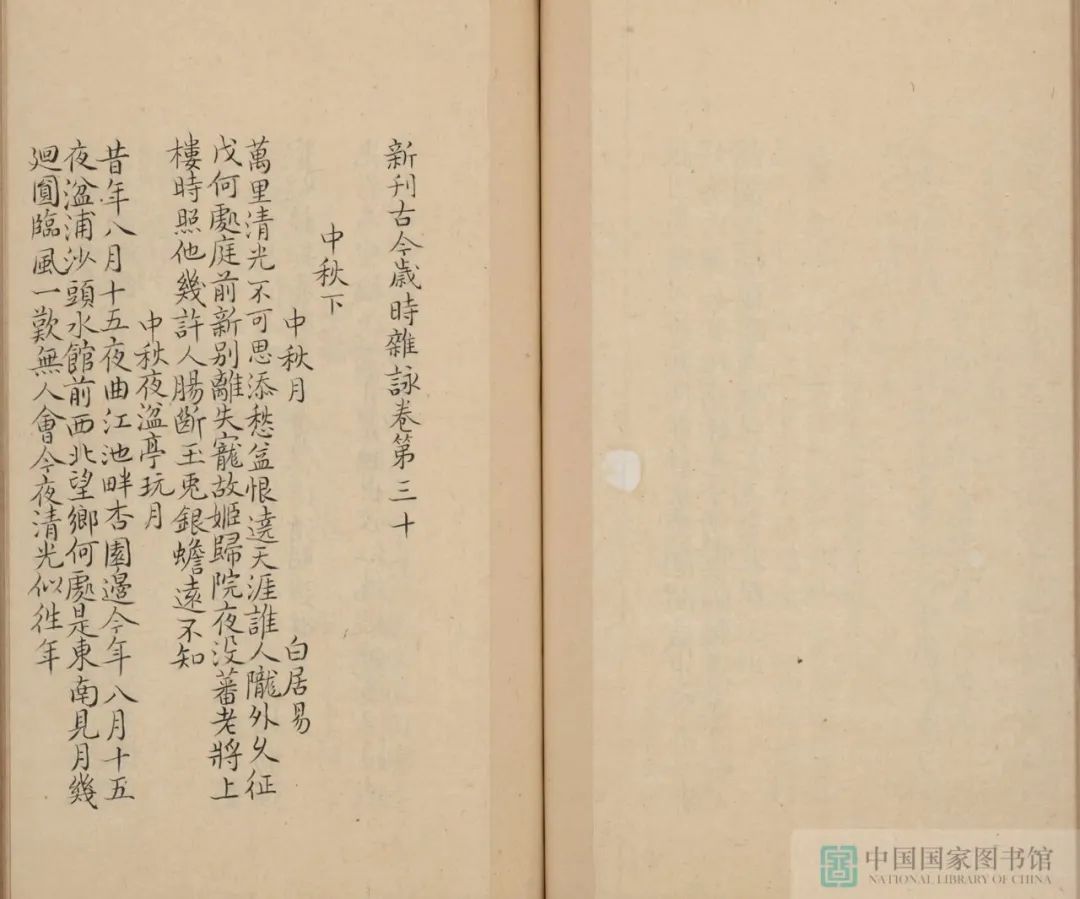 新刊古今歳時雜詠卷第三十
中秋下
中秋月　白居易
萬里清光不可思添愁益恨遶天涯誰人隴外久征
戍何處庭前新别離失寵故姬歸院夜没蕃老將上
樓時照他幾許人腸斷玉兎銀蟾遠不知
中秋夜湓亭玩月
昔年八月十五夜曲江池畔杏園邊今年八月十五
夜湓浦沙頭水館前西北望鄉何處是東南見月幾
廻圓臨風一歎無人會今夜清光似徃年
中国国家图书馆
NATIONAL LIBRARY OF CHINA